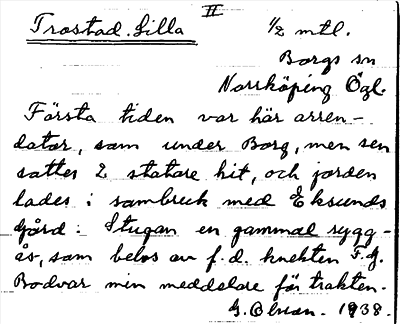 II
Trostad. Lilla ½ mtl.
Borgs sn
Norrköping Ögl.
Första tiden var här arren-
dator, som under Borg, men sen
sattes 2 statare hit, och jorden
lades i sambruk med Eksunds
gård. Stugan en gammal rygg-
ås, som bebos av f.d. knekten F.G.
Bodvar min meddelare för trakten.
G. Olsson. 1938.